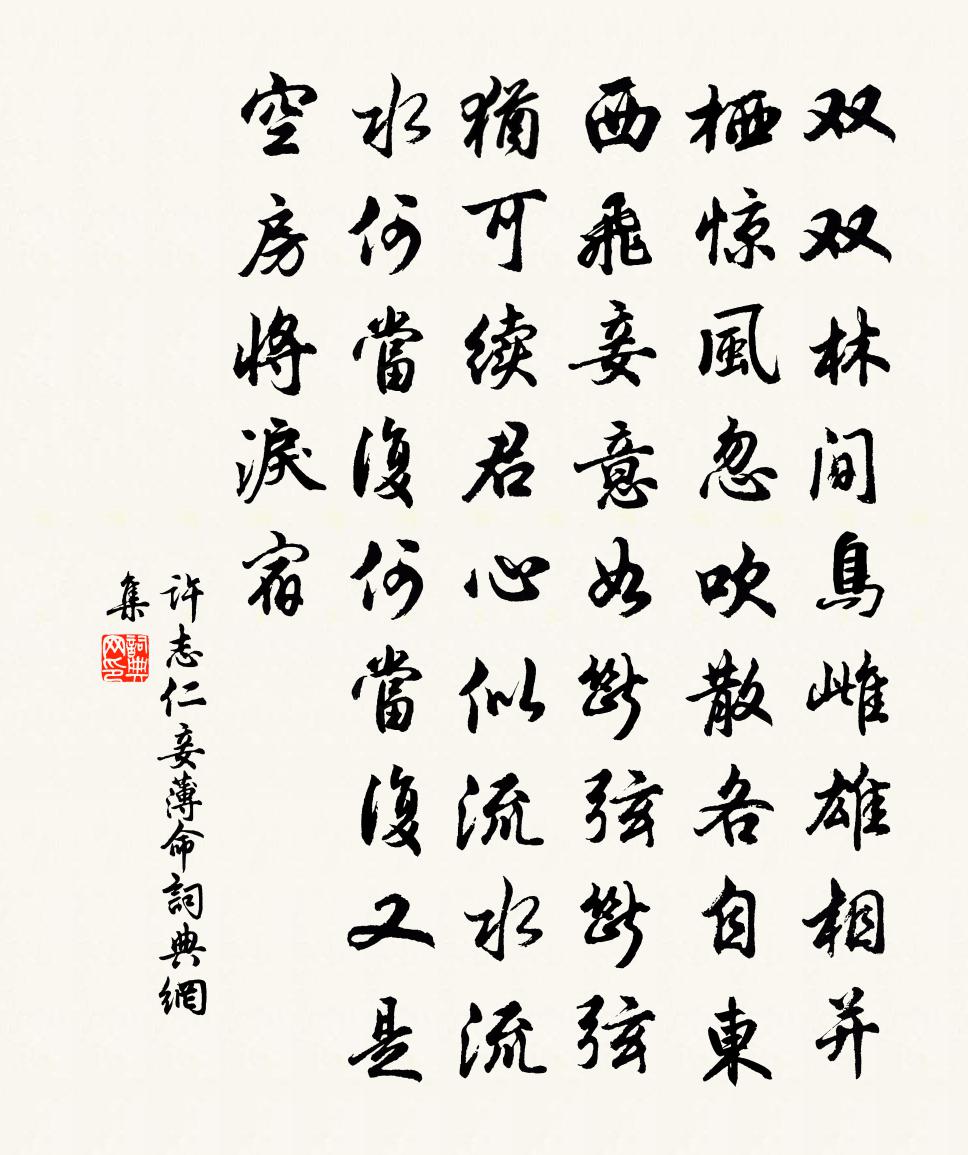 双双林间鳥雌雄相并
栖惊風忽吹散各自東
西飛妾意如斷弦斷弦
猶可续君心似流水流
水何當復何當復又是
空房將淚宿
許志仁妾薄命詞典網
集
詞典網印